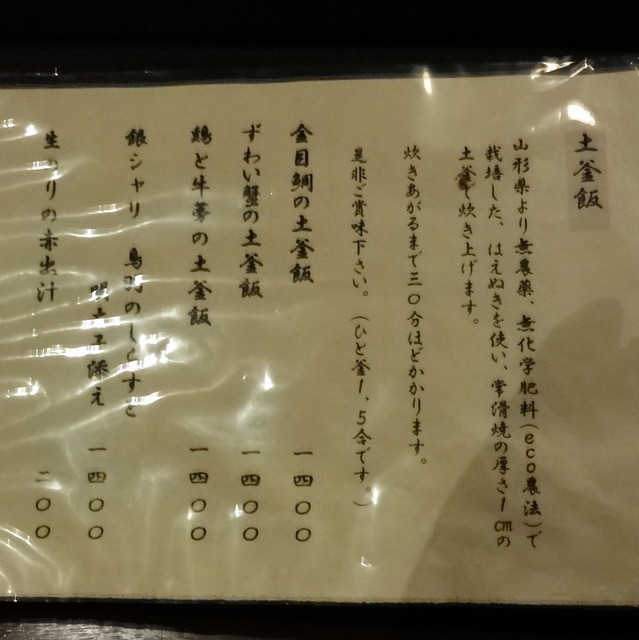 土釜飯
山形県より無農薬、無化学肥料(eco農法)で
栽培した、はえぬきを使い、常滑焼の厚さ1cmの
土釜で炊き上げます。
炊きあがるまで三〇分ほどかかります。
是非ご賞味下さい。(ひと釜1、5合です。)
金目鯛の土釜飯 一四〇〇
ずわい蟹の土釜飯 一四〇〇
鶏と牛蒡の土釜飯 一四〇〇
銀シャリ 鳥羽のしらすと
明太子添え 一四〇〇
生のりの赤出汁 二〇〇